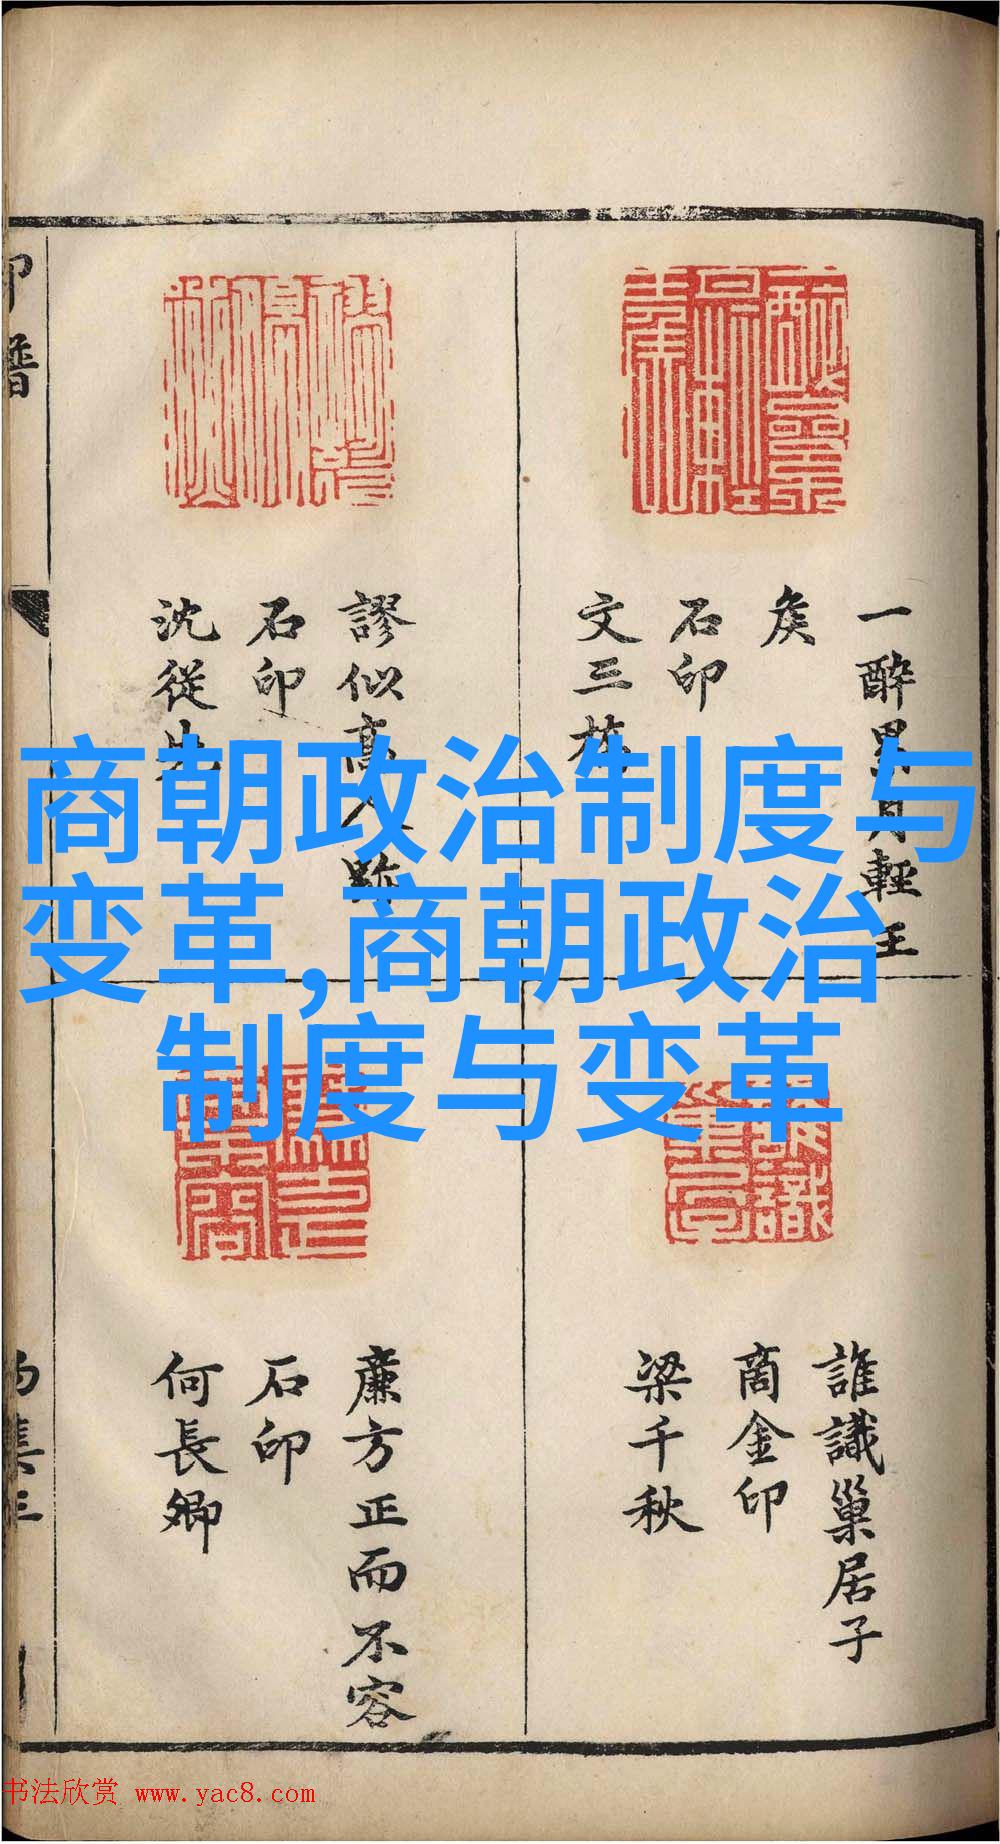 商朝政治制度与
变革,商朝政治
制度与变革
一醉累月輕王
矦
石印
文三橋
謬似高人跡
石印
沈從先
誰識巢居子
商金印
梁千秋
廉方正而不容
石印
何長卿
印譜
书法欣赏 www.yac8.com